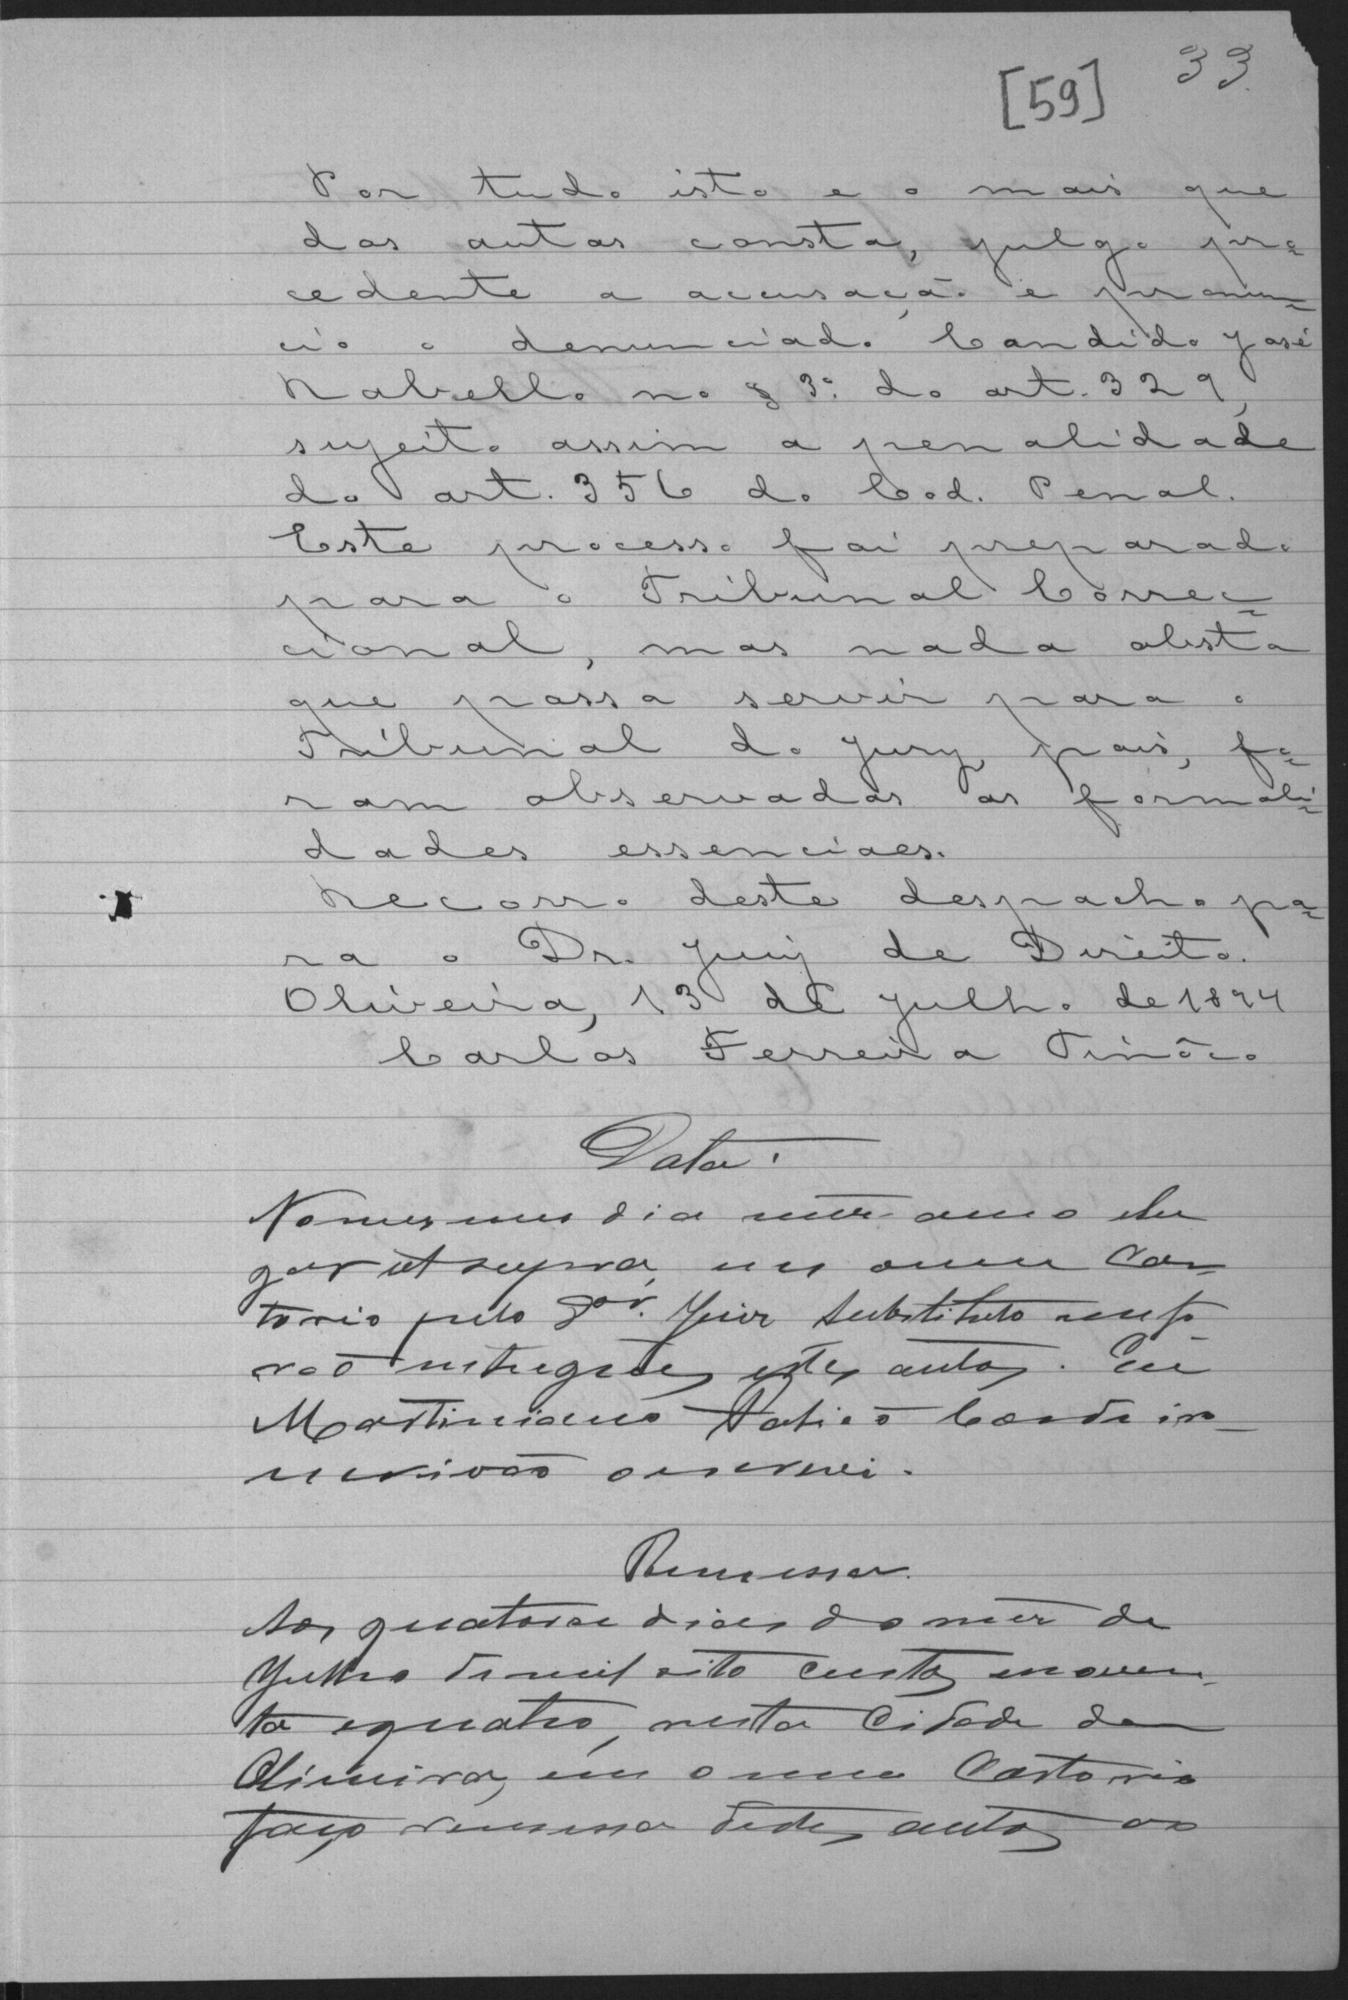 33
[59]
Por tudo isto e o mais que
dos autos consta, julgo pro=
cedente a accusação e pronun=
cio o denunciado Candido José
Rabello no § 3º do art. 329,
sujeito assim a penalidade
do art. 356 do Cod. Penal.
Este processo foi preparado
para o Tribunal Correc=
cional, mas nada obsta
que possa servir para o
Tribunal do Jury, pois, fo=
ram observadas as formali=
dades essenciaes.
Recorro deste despacho pa=
ra o Dr. Juiz de Direito.
Oliveira, 13 de Julho de 1894
Carlos Ferreira Tinôco
Data.
No mesmo dia mez anno e lu
gar ut supra, em o meu Car=
torio pelo Juiz Substituto me fo
rão entregues estes autos. Eu
Martiniano Cordeiro
escrivão o escrevi.
Remessa.
Aos quatorze dias do mez de
Julho de mil oito centos noven
ta e quatro, nesta Cidade da
Oliveira, em o meu Cartorio
faço remessa destes autos ao